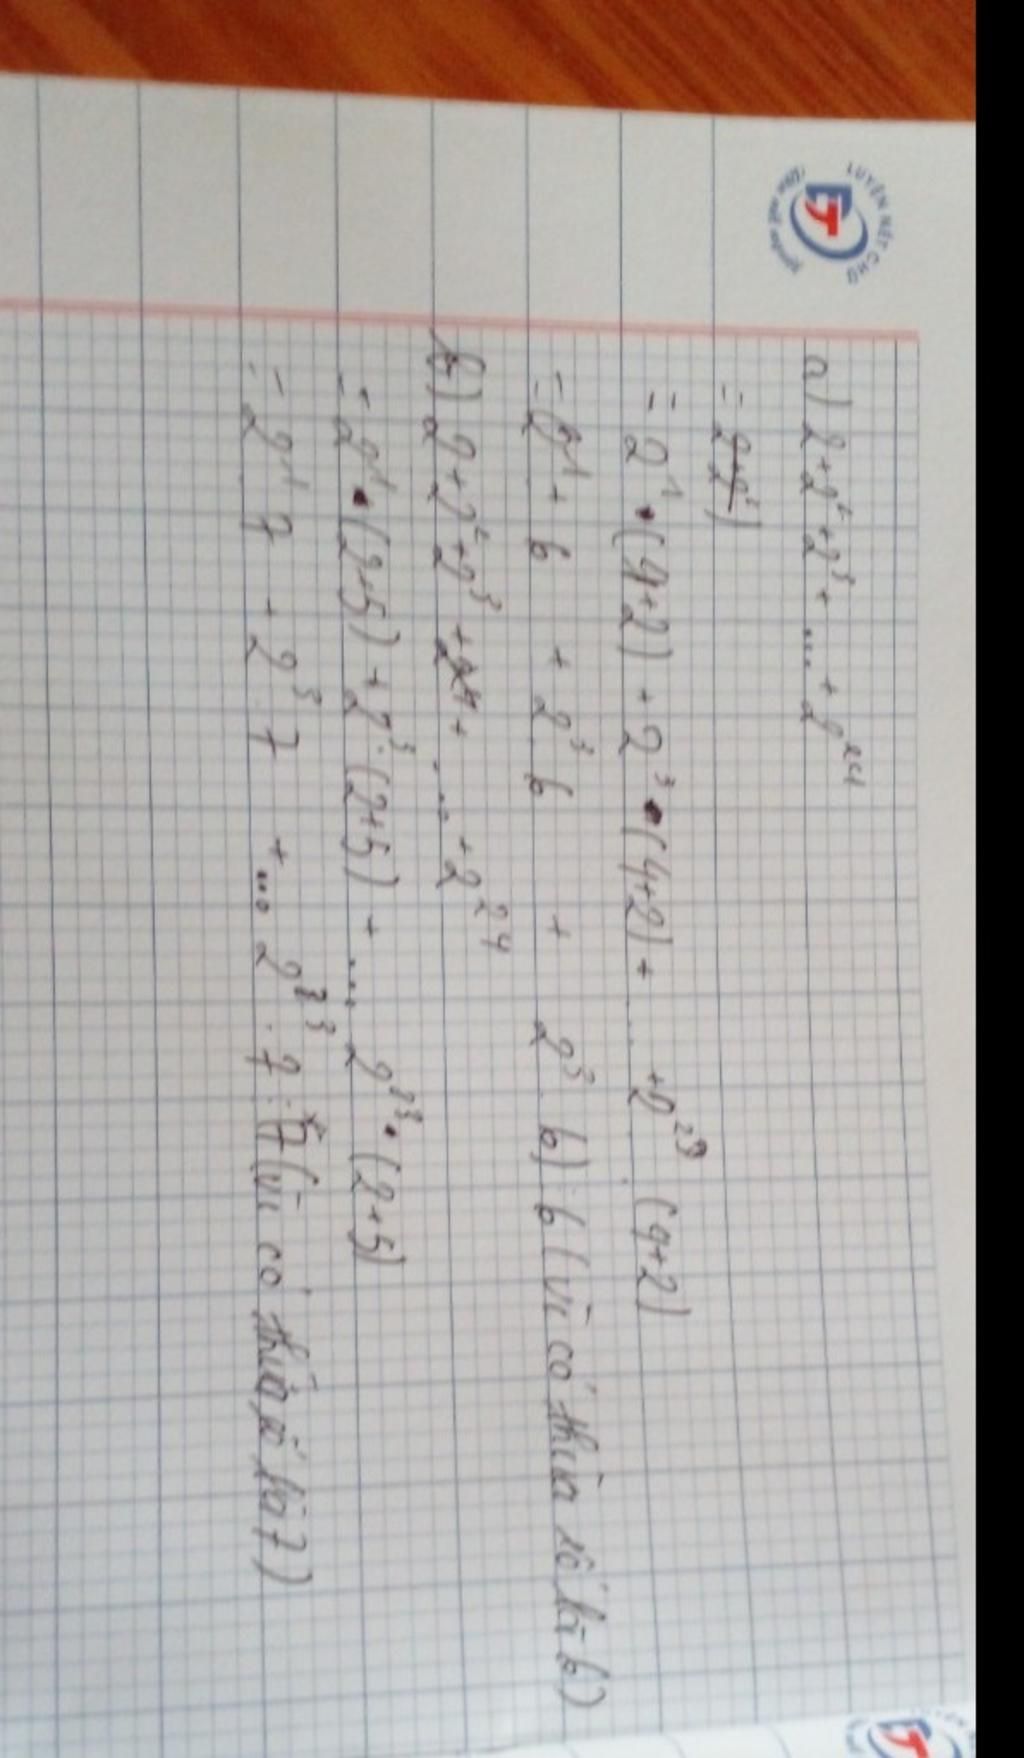 LUYỆN NÉT CHỮ
a) 2+2²+2³+ ... + 2²⁴
= 2+2²)
= 2¹.(4+2) + 2³.(4+2) + ... +2²³ (4+2)
= (2¹+ 6 + 2³.6 + 2³.6) : 6 (vì có thừa số là 6)
b) 2+2²+2³ +24+ ... +2²⁴
= 2¹.(2+5) + 2³.(2+5) + ... 2²³.(2+5)
= 2¹ 7 + 2³.7 +... 2²³.7 : 7 (vì có thừa số là 7)